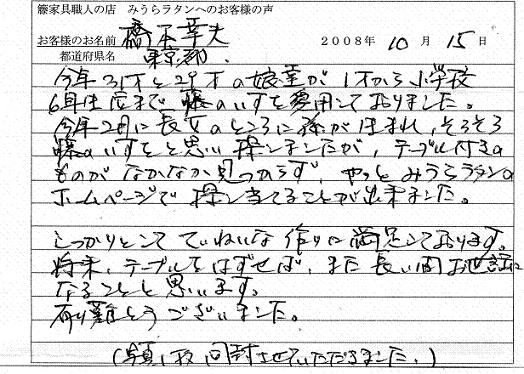 籐家具職人の店 みうらラタンへのお客様の声
お客様のお名前 橋本幸夫 2008年 10月 15日
都道府県名 東京都
今年31才と29才の娘達が1才から小学校
6年生位まで籐のいすを愛用しておりました。
今年2月に長女のところに孫が生まれ、そろそろ
籐のいすをと思い探しましたが、テーブル付きの
ものがなかなか見つからず、やっとみうらラタンの
ホームページで探し当てることが出来ました。
しっかりとしてていねいな作りに満足しております。
将来、テーブルをはずせば、また長い間お世話に
なることと思います。
有難とうございました。
(写真1枚同封させていただきました。)